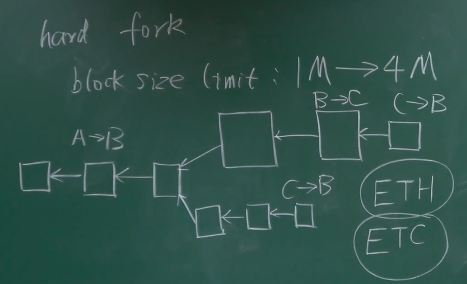 hard fork
block size limit : 1M → 4M
B→C
C→B
A→B
C→B
ETH
ETC